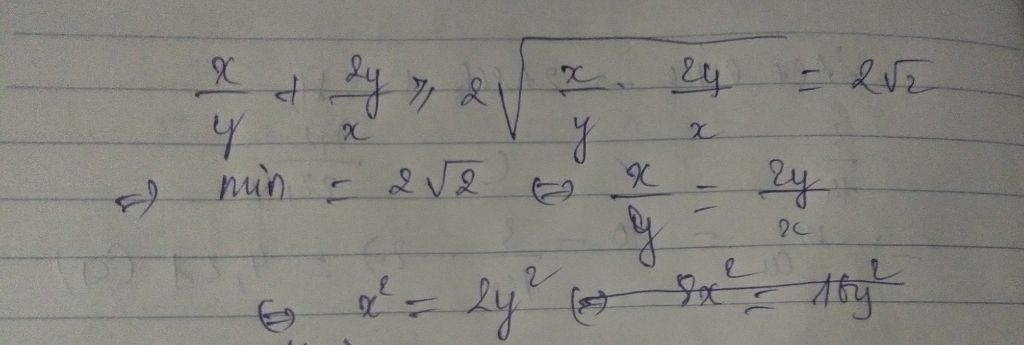 x/y + 2y/x ≥ 2√(x/y · 2y/x) = 2√2
=> min = 2√2 <=> x/y = 2y/x
<=> x² = 2y² <=> 8x² = 16y²